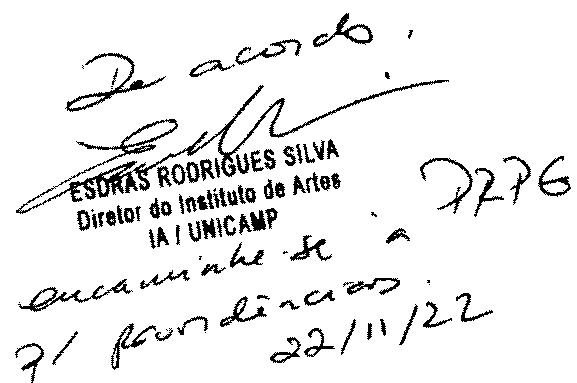 De acordo.
ESDRAS RODRIGUES SILVA
Diretor do Instituto de Artes
IA / UNICAMP
encaminhe-se à PRPG
p/ providências.
22/11/22